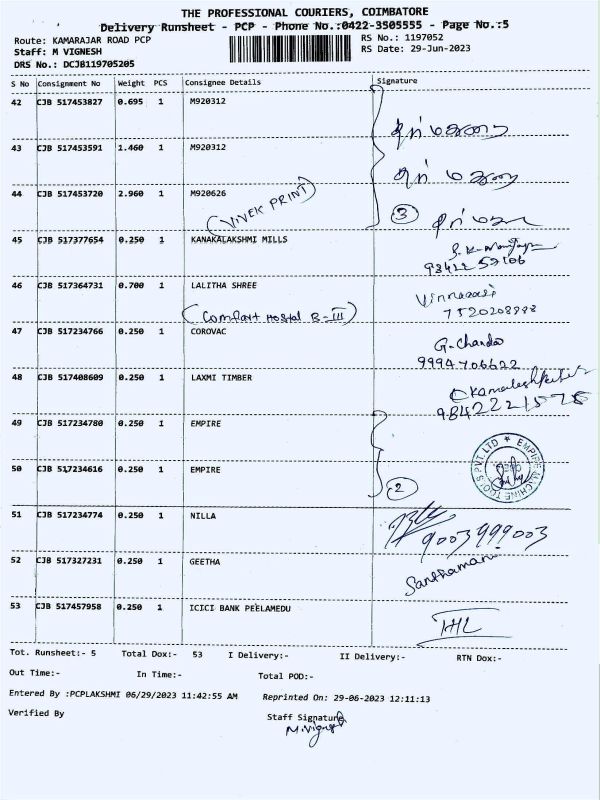 THE PROFESSIONAL COURIERS, COIMBATORE
Delivery Runsheet - PCP - Phone No.:0422-3505555 - Page No.:5
Route: KAMARAJAR ROAD PCP RS No.: 1197052
Staff: M VIGNESH RS Date: 29-Jun-2023
DRS No.: DCJB119705205
S No Consignment No Weight PCS Consignee Details Signature
42 CJB 517453827 0.695 1 M920312
43 CJB 517453591 1.460 1 M920312
44 CJB 517453720 2.960 1 M920626
(VIVEK PRINT) 3
45 CJB 517377654 0.250 1 KANAKALAKSHMI MILLS
46 CJB 517364731 0.700 1 LALITHA SHREE
7520208998
(Comfort Hostal B-III)
47 CJB 517234766 0.250 1 COROVAC G.Chandra
9994706622
48 CJB 517408609 0.250 1 LAXMI TIMBER
9842221578
49 CJB 517234780 0.250 1 EMPIRE
EMPIRE MACHINE TOOLS PVT. LTD
50 CJB 517234616 0.250 1 EMPIRE
2
51 CJB 517234774 0.250 1 NILLA
9003999003
52 CJB 517327231 0.250 1 GEETHA Santhamani
53 CJB 517457958 0.250 1 ICICI BANK PEELAMEDU
Tot. Runsheet:- 5 Total Dox:- 53 I Delivery:- II Delivery:- RTN Dox:-
Out Time:- In Time:- Total POD:-
Entered By :PCPLAKSHMI 06/29/2023 11:42:55 AM Reprinted On: 29-06-2023 12:11:13
Verified By Staff Signature
M.Vignesh